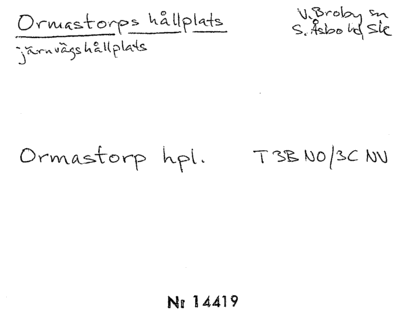 Ormastorps hållplats
V. Broby sn
S. Åsbo hd, Sk
järnvägshållplats
Ormastorp hpl.
T 3B NO/3C NV
Nr 14419